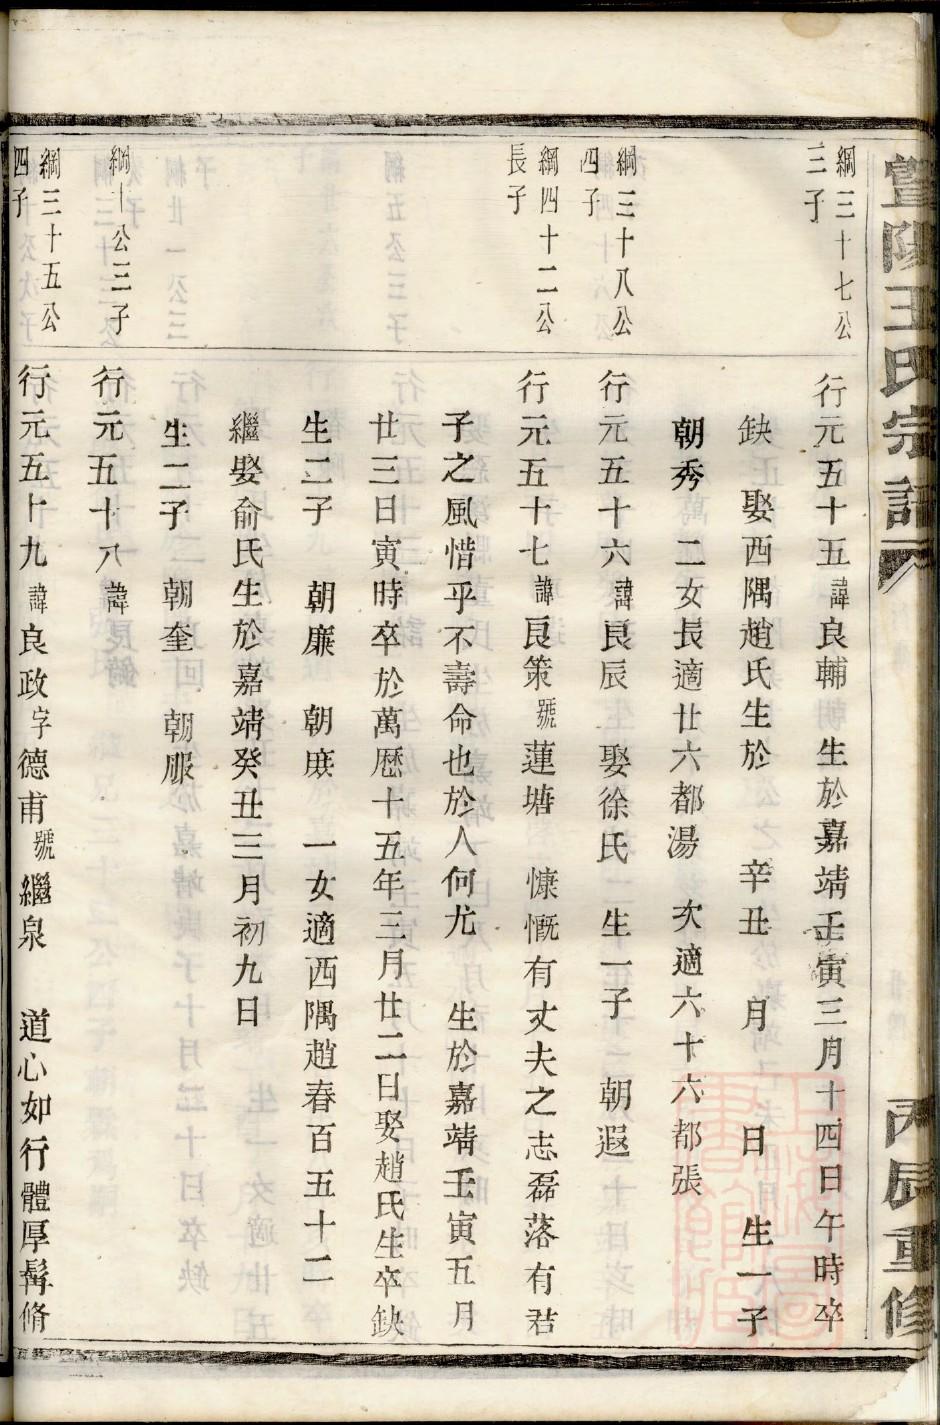 暨陽王氏宗譜
丙辰重修
綱三十七公
三子
行元五十五諱良輔 生於嘉靖壬寅三月十四日午時卒
缺 娶西隅趙氏生於 辛丑 月 日 生一子
朝秀 二女長適廿六都湯 次適六十六都張
綱三十八公
四子
行元五十六諱良辰 娶徐氏 生一子 朝遐
綱四十二公
長子
行元五十七諱良策號蓮塘 慷慨有丈夫之志磊落有君
子之風惜乎不壽命也於人何尤 生於嘉靖壬寅五月
廿三日寅時卒於萬歷十五年三月廿二日娶趙氏生卒缺
生二子 朝廉 朝庶 一女適西隅趙春百五十二
繼娶俞氏生於嘉靖癸丑三月初九日
生二子 朝奎 朝服
綱十公三子
行元五十八諱
綱三十五公
四子
行元五十九諱良政字德甫號繼泉 道心如行體厚髯脩